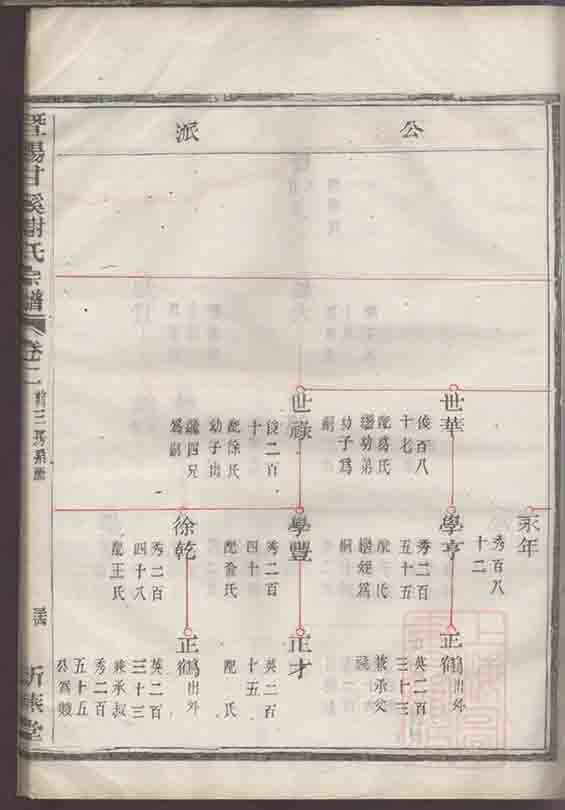 公
派
永年
秀百八
十二
世華
俊百八
十七
配葛氏
幼子爲
嗣
學亨
秀二百
五十五
正鶴出外
英二百
三十三
兼承父
世祿
俊二百
十
配徐氏
幼子出
四兄
爲嗣
學豐
秀二百
四十
配俞氏
正才
英二百
十五
配 氏
徐乾
秀二百
四十八
配王氏
正鶴出外
英二百
三十三
兼承叔
秀二百
五十五
暨陽甘溪謝氏宗譜
卷二